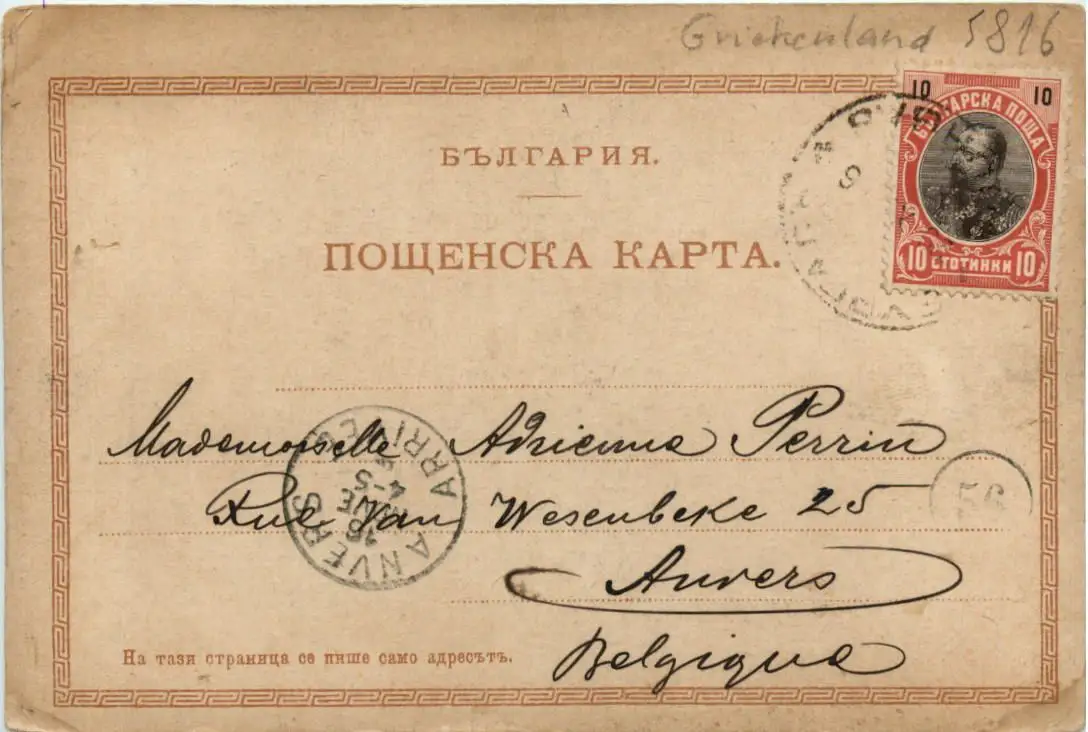 Griekenland 5816
10 10
БЪЛГАРСКА ПОЩА
10 СТОТИНКИ 10
БЪЛГАРИЯ.
ПОЩЕНСКА КАРТА.
Mademoiselle Adrienne Perrin
Rue Van Wesenbeke 25
Anvers
Belgique
56
ANVERS
ARRIVÉES
4-5
На тази страница се пише само адресътъ.